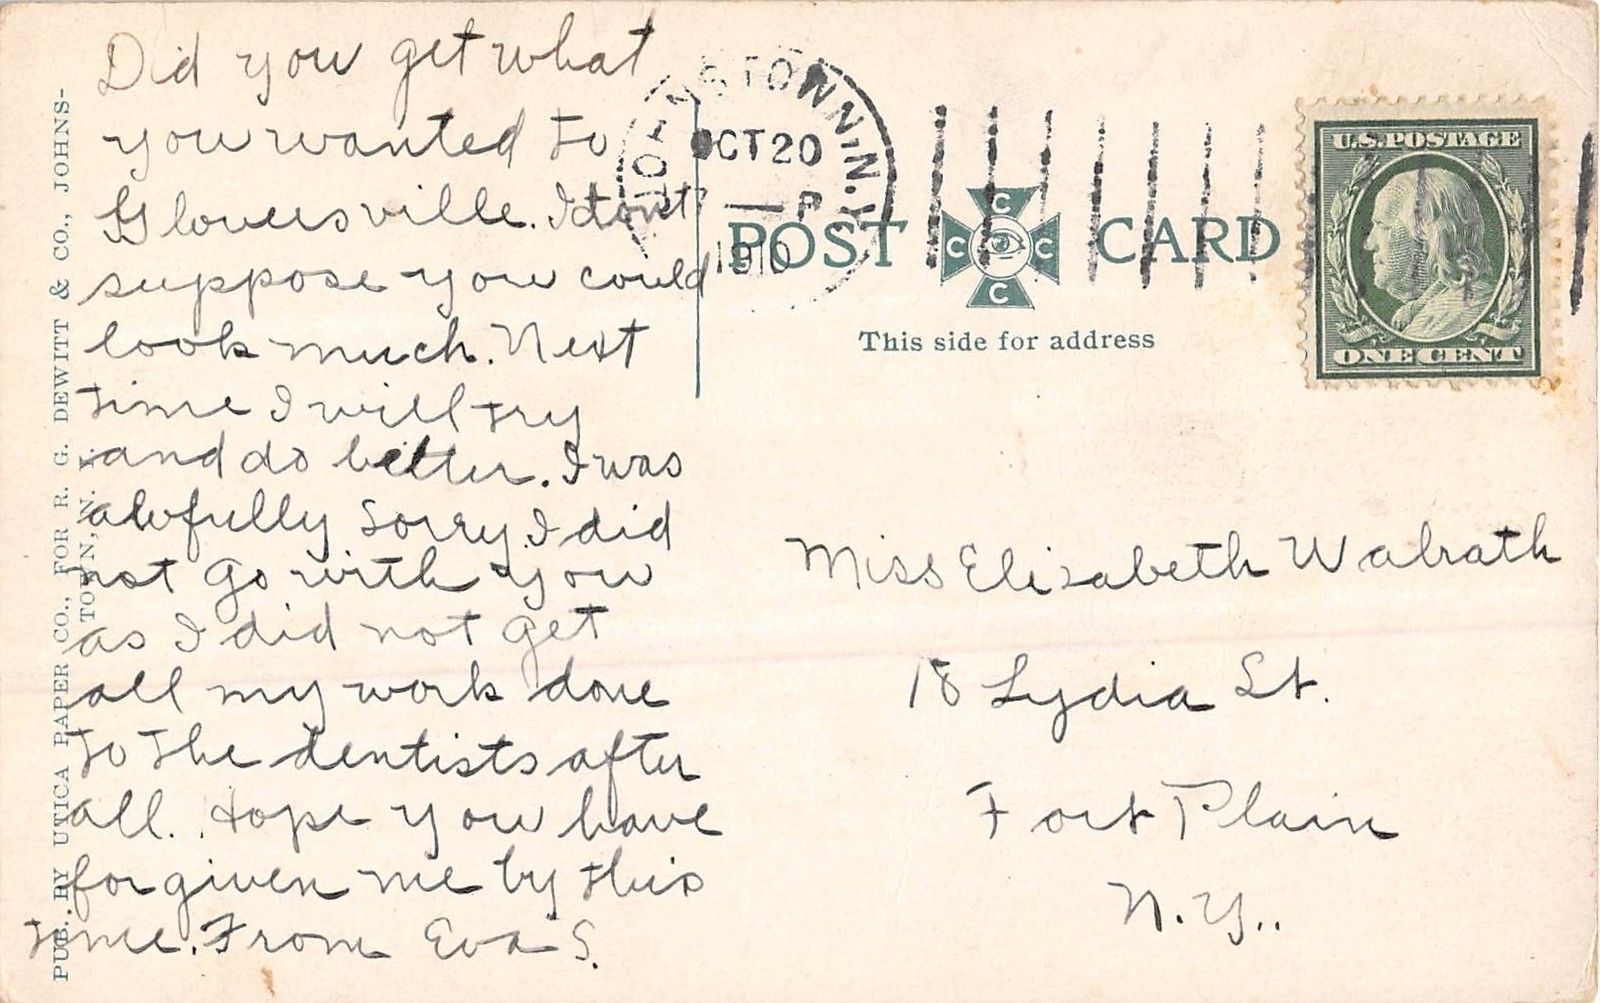 Did you get what
you wanted to
Gloversville. I dont
suppose you could
look much. Next
time I will try
and do better. I was
awfully sorry I did
not go with you
as I did not get
all my work done
to the dentists after
all. Hope you have
forgiven me by this
time. From Eva S.
PUB. BY UTICA PAPER CO., FOR R. G. DEWITT & CO., JOHNS-
TOWN, N. Y.
JOHNSTOWN, N.Y.
OCT 20
1910
POST CARD
C C C C
This side for address
U.S. POSTAGE
ONE CENT
Miss Elizabeth Walrath
18 Lydia St.
Fort Plain
N.Y..